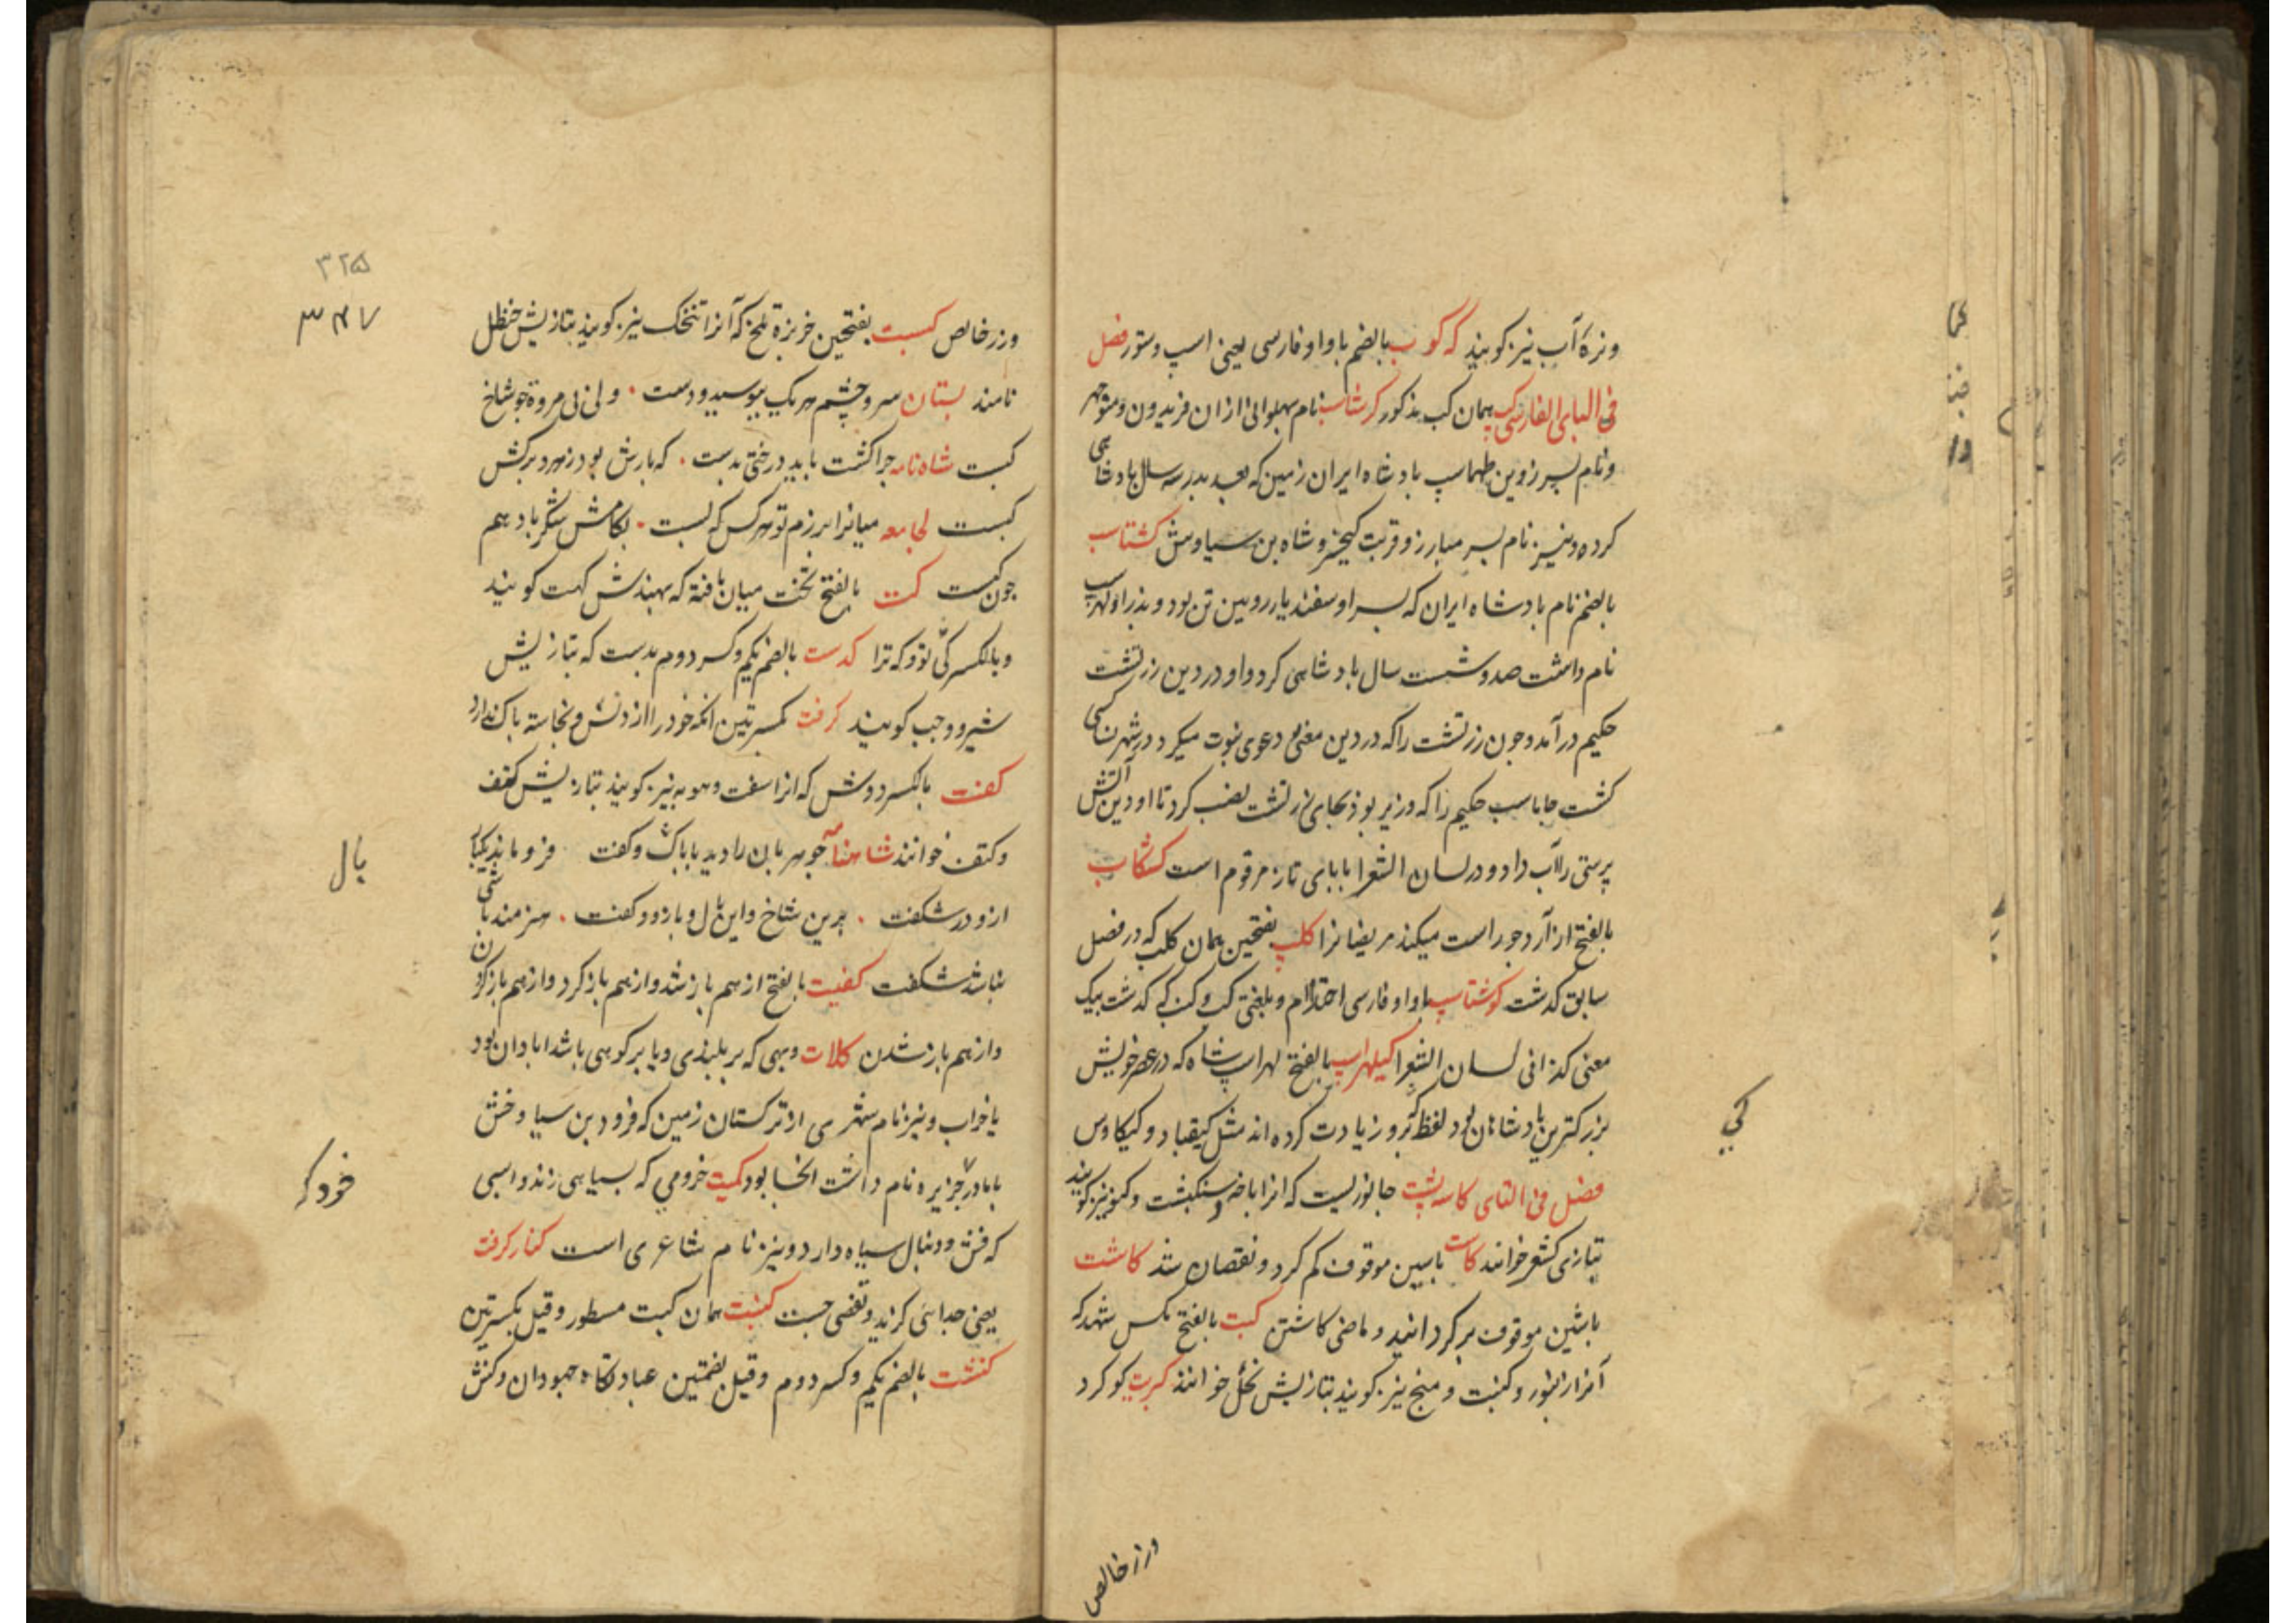 ونزهٔ آب نیز کویند که کوب بالضم باواو فارسی یعنی اسپ وستور فصل
فی البای الفارسی کپ همان کب مذکور کرشاسپ نام پهلوانی از ان فریدون ومنوچهر
ونام پسر زوبن طهماسپ بادشاه ایران زمین که بعد پدر سه سال بادشاهی
کرده ونیز نام پسر مبارز و قربت کیخسرو شاه بن سیاوش کشتاسپ
بالضم نام بادشاه ایران که پسر او سفندیار رویین تن بود و پدر او لهراسپ
نام داشت صد وشست سال بادشاهی کرد واو در دین زرتشت
حکیم در آمد وچون زرتشت را که در دین مغی دعوی نبوت میکرد در شهر
کشت جاماسب حکیم را که وزیر بود بجای زرتشت نصب کرد تا او دین آتش
پرستی را آب داد و در لسان الشعرا با بای تازی مرقوم است کشکاب
بالفتح از آرد جو راست میکنند مریضانرا کلپ بفتحین همان کلب که در فصل
سابق کذشت کوشتاسپ باواو فارسی احتلام و بلغتی کب وکپ که کذشت بیک
معنی کذا فی لسان الشعرا کیلهراسپ بالفتح لهراسپ شاه که در عصر خویش
بزرکترین بادشاهان بود لفظ کی برو زیادت کرده اند مثل کیقباد و کیکاوس
فصل فی التای کاسه پشت جانوریست که انرا باخه وسنکپشت و نیز کویند
بتازی کشف خوانند کاست باسین موقوف کم کرد و نقصان شد کاشت
باشین موقوف برکردانید و ماضی کاشتن کبت بالفتح مکس شهد که
آنرا زنبور و کبنت و منج نیز کویند بتازیش نحل خوانند کبریت کوکرد
ورز خالص
کی
۳۲۵
۳۴۷
وزر خالص کبست بفتحین خربزهٔ تلخ که آنرا نیز کویند بتازیش حنظل
نامند بستان سر وچشم هر یک ببوسید ودست ولی بی مروة چو شاخ
کبست شاه نامه چرا کشت باید درختی بدست که بارش بود زهر و برکش
کبست لجامعه میانرا برزم تو هر کس که بست بکامش شکر باد هم
چون کبست کت بالفتح تخت میان بافته که بهندش کهت کویند
وبالکسر کی تو وکه ترا کدست بالضم یکم وکسر دوم بدست که بتازیش
شبر و وجب کویند کرفت بکسرتین انکه خود را از دنس ونجاسته باک ندارد
کفت بالکسر دوش که انرا سفت وهویه نیز کویند بتازیش کتف
وکتف خوانند شاهنامه چو مهربان را دید باباک وکفت فرو ماند یکبا
ازو در شکفت برین شاخ واین یال وبازو وکفت هنرمند باشی
نباشد شکفت کفیت بالفتح از هم باز شد واز هم باز کرد واز هم باز کردن
واز هم باز شدن کلات دیهی که بر بلندی ویا بر کوهی باشد ابادان بود
یا خراب ونیز نام شهری از ترکستان زمین که فرود بن سیاوخش
با مادر جریره نام داشت انجا بود کمیت خرومی که بسیاهی زند واسبی
که فش ودنبال سیاه دارد ونیز نام شاعری است کنار کرفت
یعنی جدایی کزید وتفصی جست کنبت همان کبت مسطور وقیل بکسرتین
کنشت بالضم یکم وکسر دوم وقیل بضمتین عبادتکاه جهودان وکنش
یال
خروکه